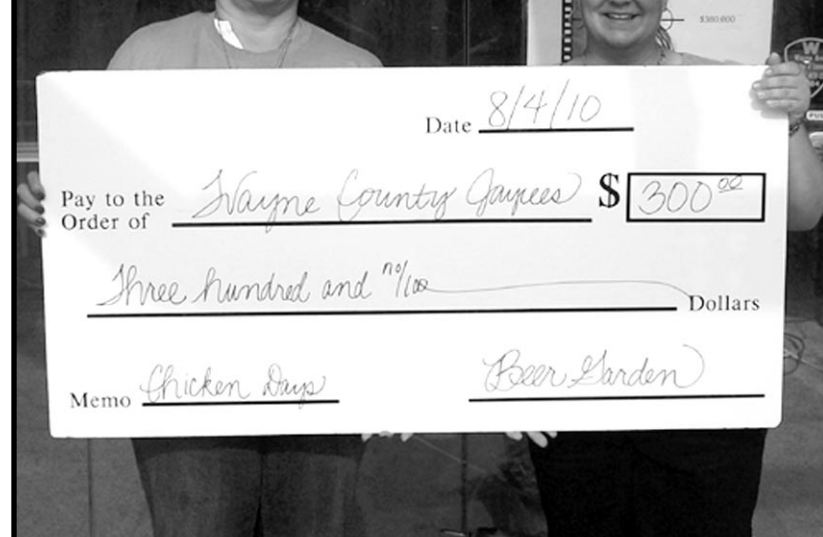 $380,600
W
Date 8/4/10
Pay to the
Order of Wayne County Jaycees $ 300 00
Three hundred and no/100 Dollars
Memo Chicken Days Beer Garden